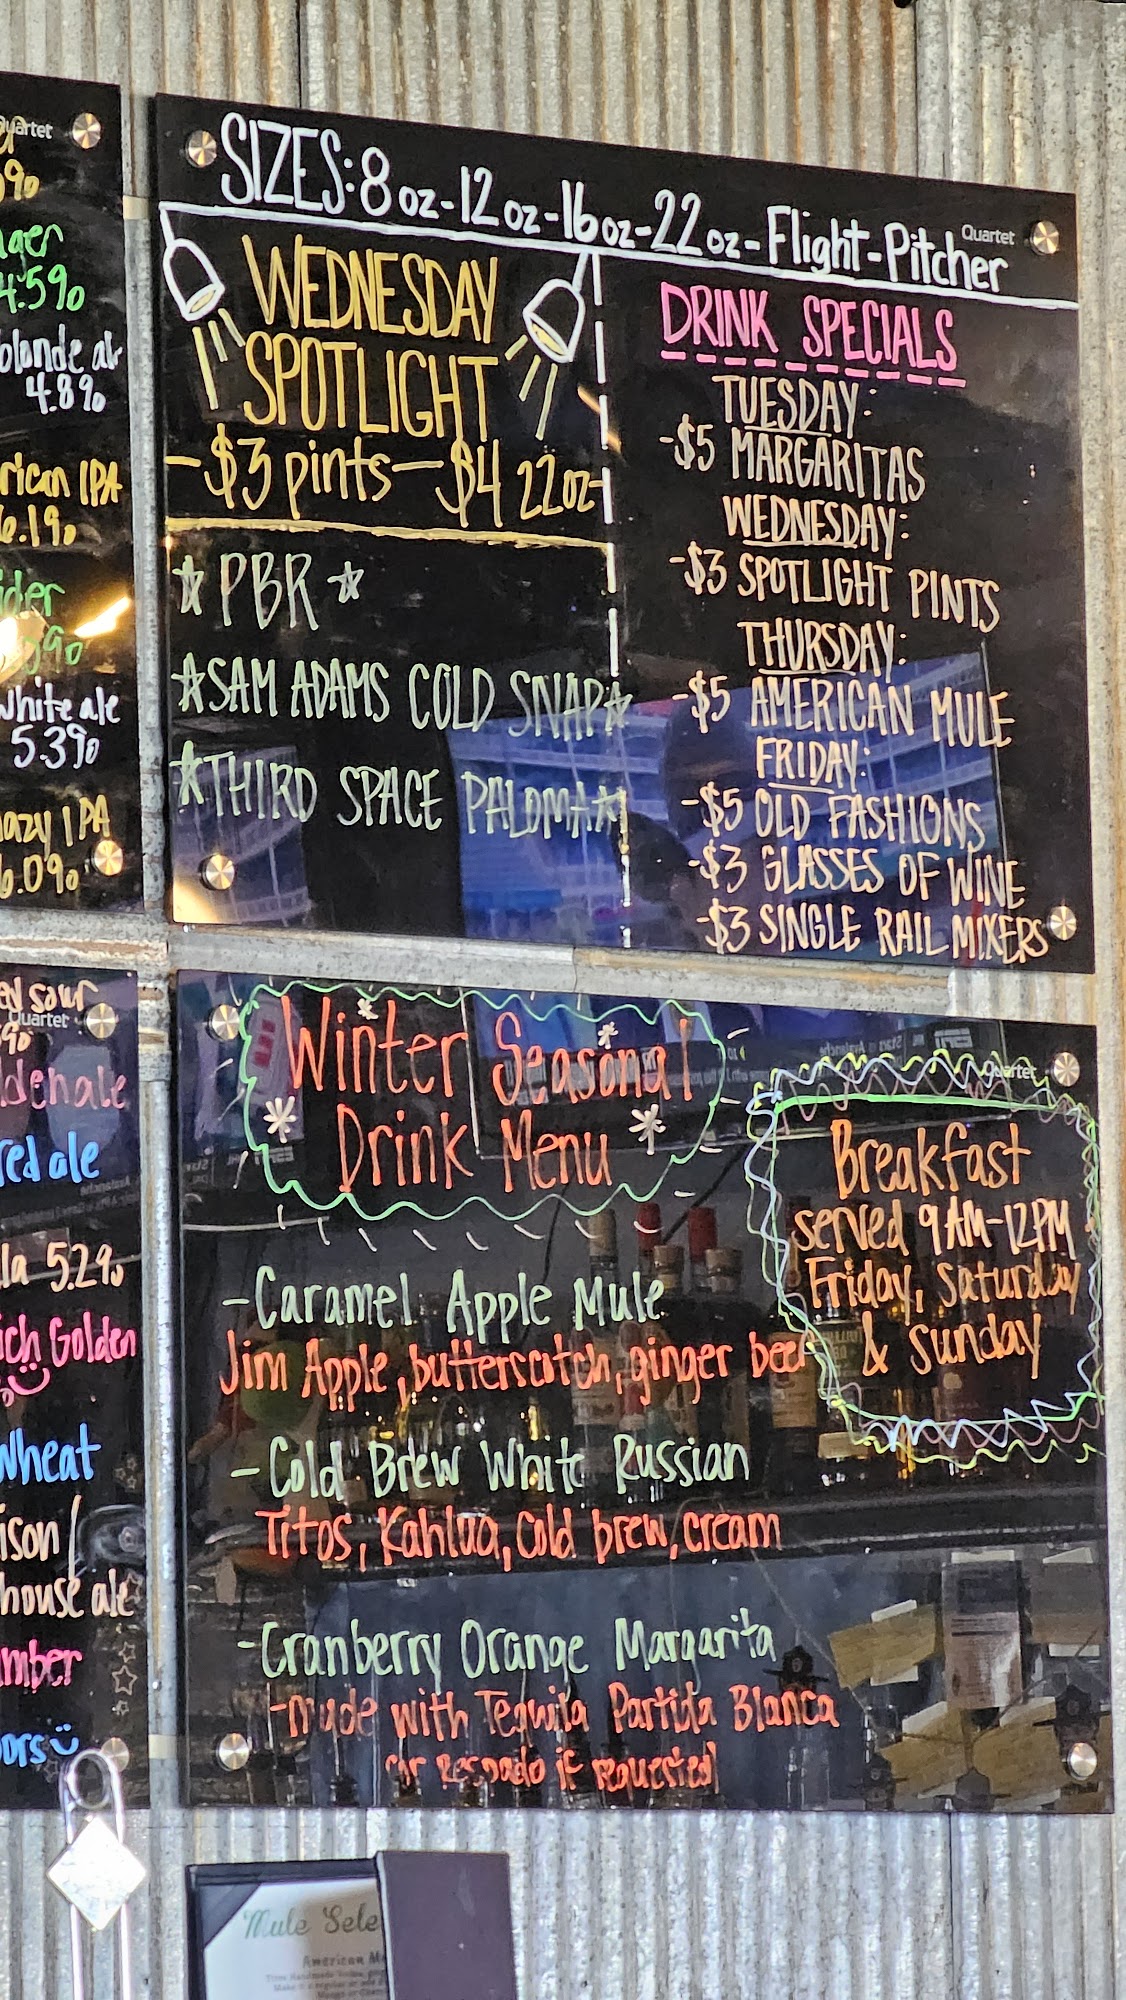 Quartet
SIZES: 8 oz-12 oz-16 oz-22 oz- Flight-Pitcher
Quartet
WEDNESDAY
SPOTLIGHT
-$3 pints-$4 22oz-
☆ PBR ☆
☆SAM ADAMS COLD SNAP☆
☆THIRD SPACE PALOMA☆
DRINK SPECIALS
TUESDAY:
-$5 MARGARITAS
WEDNESDAY:
-$3 SPOTLIGHT PINTS
THURSDAY:
-$5 AMERICAN MULE
FRIDAY:
-$5 OLD FASHIONS
-$3 GLASSES OF WINE
-$3 SINGLE RAIL MIXERS
4.5%
4.8%
IPA
6.1%
white ale
5.3%
IPA
6.0%
sour
Quartet
red ale
5.2%
Golden
Wheat
house ale
Winter Seasonal
Drink Menu
-Caramel Apple Mule
Jim Apple, butterscotch, ginger beer
-Cold Brew White Russian
Titos, Kahlua, cold brew, cream
-Cranberry Orange Margarita
-made with Tequila Partida Blanca
or Resposado if requested
Quartet
Breakfast
served 9AM-12PM
Friday, Saturday
& Sunday
Mule Sele
American M